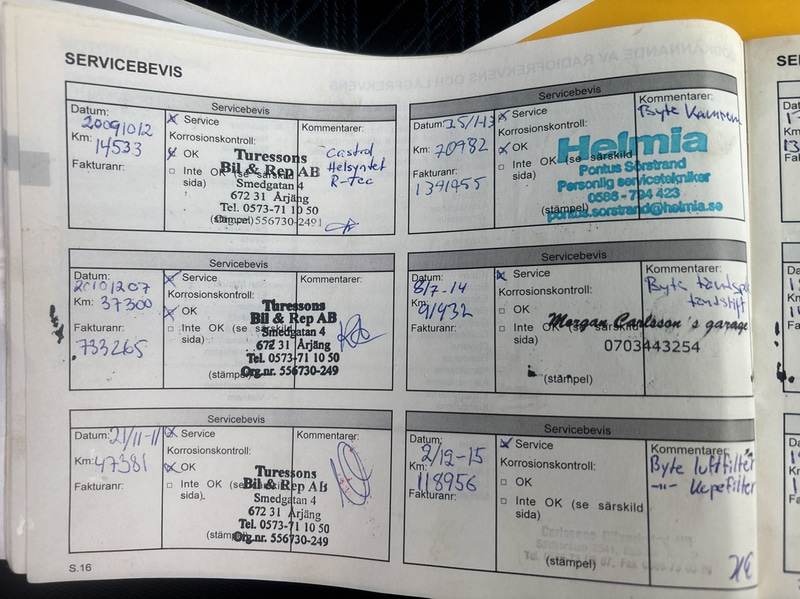 SERVICEBEVIS
Servicebevis
Datum:
20091012
Km: 14533
Fakturanr:
Service
Korrosionskontroll:
OK
Inte OK (se särskild
sida)
Kommentarer:
Castrol
Helsyntet
R-Tec
Turessons
Bil & Rep AB
Smedgatan 4
672 31 Årjäng
Tel. 0573-71 10 50
(stämpel) 556730-2491
Servicebevis
Datum:
20101207
Km: 37300
Fakturanr:
733265
Service
Korrosionskontroll:
OK
Inte OK (se särskild
sida)
Kommentarer:
Turessons
Bil & Rep AB
Smedgatan 4
672 31 Årjäng
Tel. 0573-71 10 50
Org.nr. 556730-249
(stämpel)
Servicebevis
Datum: 21/11-11
Km: 47381
Fakturanr:
Service
Korrosionskontroll:
OK
Inte OK (se särskild
sida).
Kommentarer:
Turessons
Bil & Rep AB
Smedgatan 4
672 31 Årjäng
Tel. 0573-71 10 50
Org.nr. 556730-249
S.16
Servicebevis
Datum:
Km: 70982
Fakturanr:
Service
Korrosionskontroll:
OK
Inte OK (se särskild
sida)
Kommentarer:
Byte Kamrem
Helmia
Pontus Sörstrand
Personlig servicetekniker
0586 - 794 423
pontus.sorstrand@helmia.se
(stämpel)
Servicebevis
Datum:
8/7-14
Km: 91932
Fakturanr:
Service
Korrosionskontroll:
OK
Inte OK (se särskild
sida)
Kommentarer:
Byte
tändstift
Morgan Carlsson's garage
0703443254
(stämpel)
Servicebevis
Datum:
2/12-15
Km:
118956
Fakturanr:
Service
Korrosionskontroll:
OK
Inte OK (se särskild
sida)
Kommentarer:
Byte luftfilter
-"- Kupefilter
(stämpel)